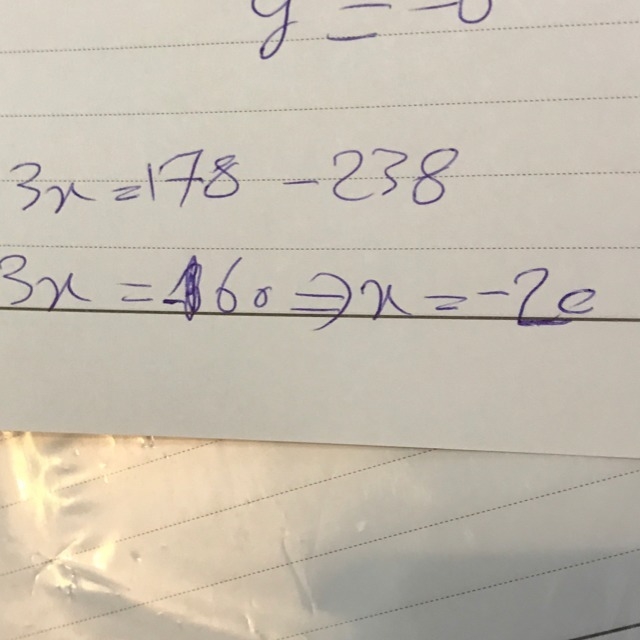 y = -6
3x = 178 - 238
3x = -60 => x = -20